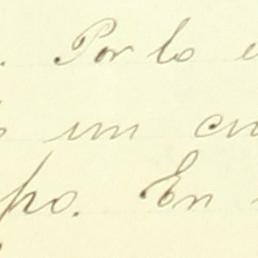 . Por lo
un cu
po. En